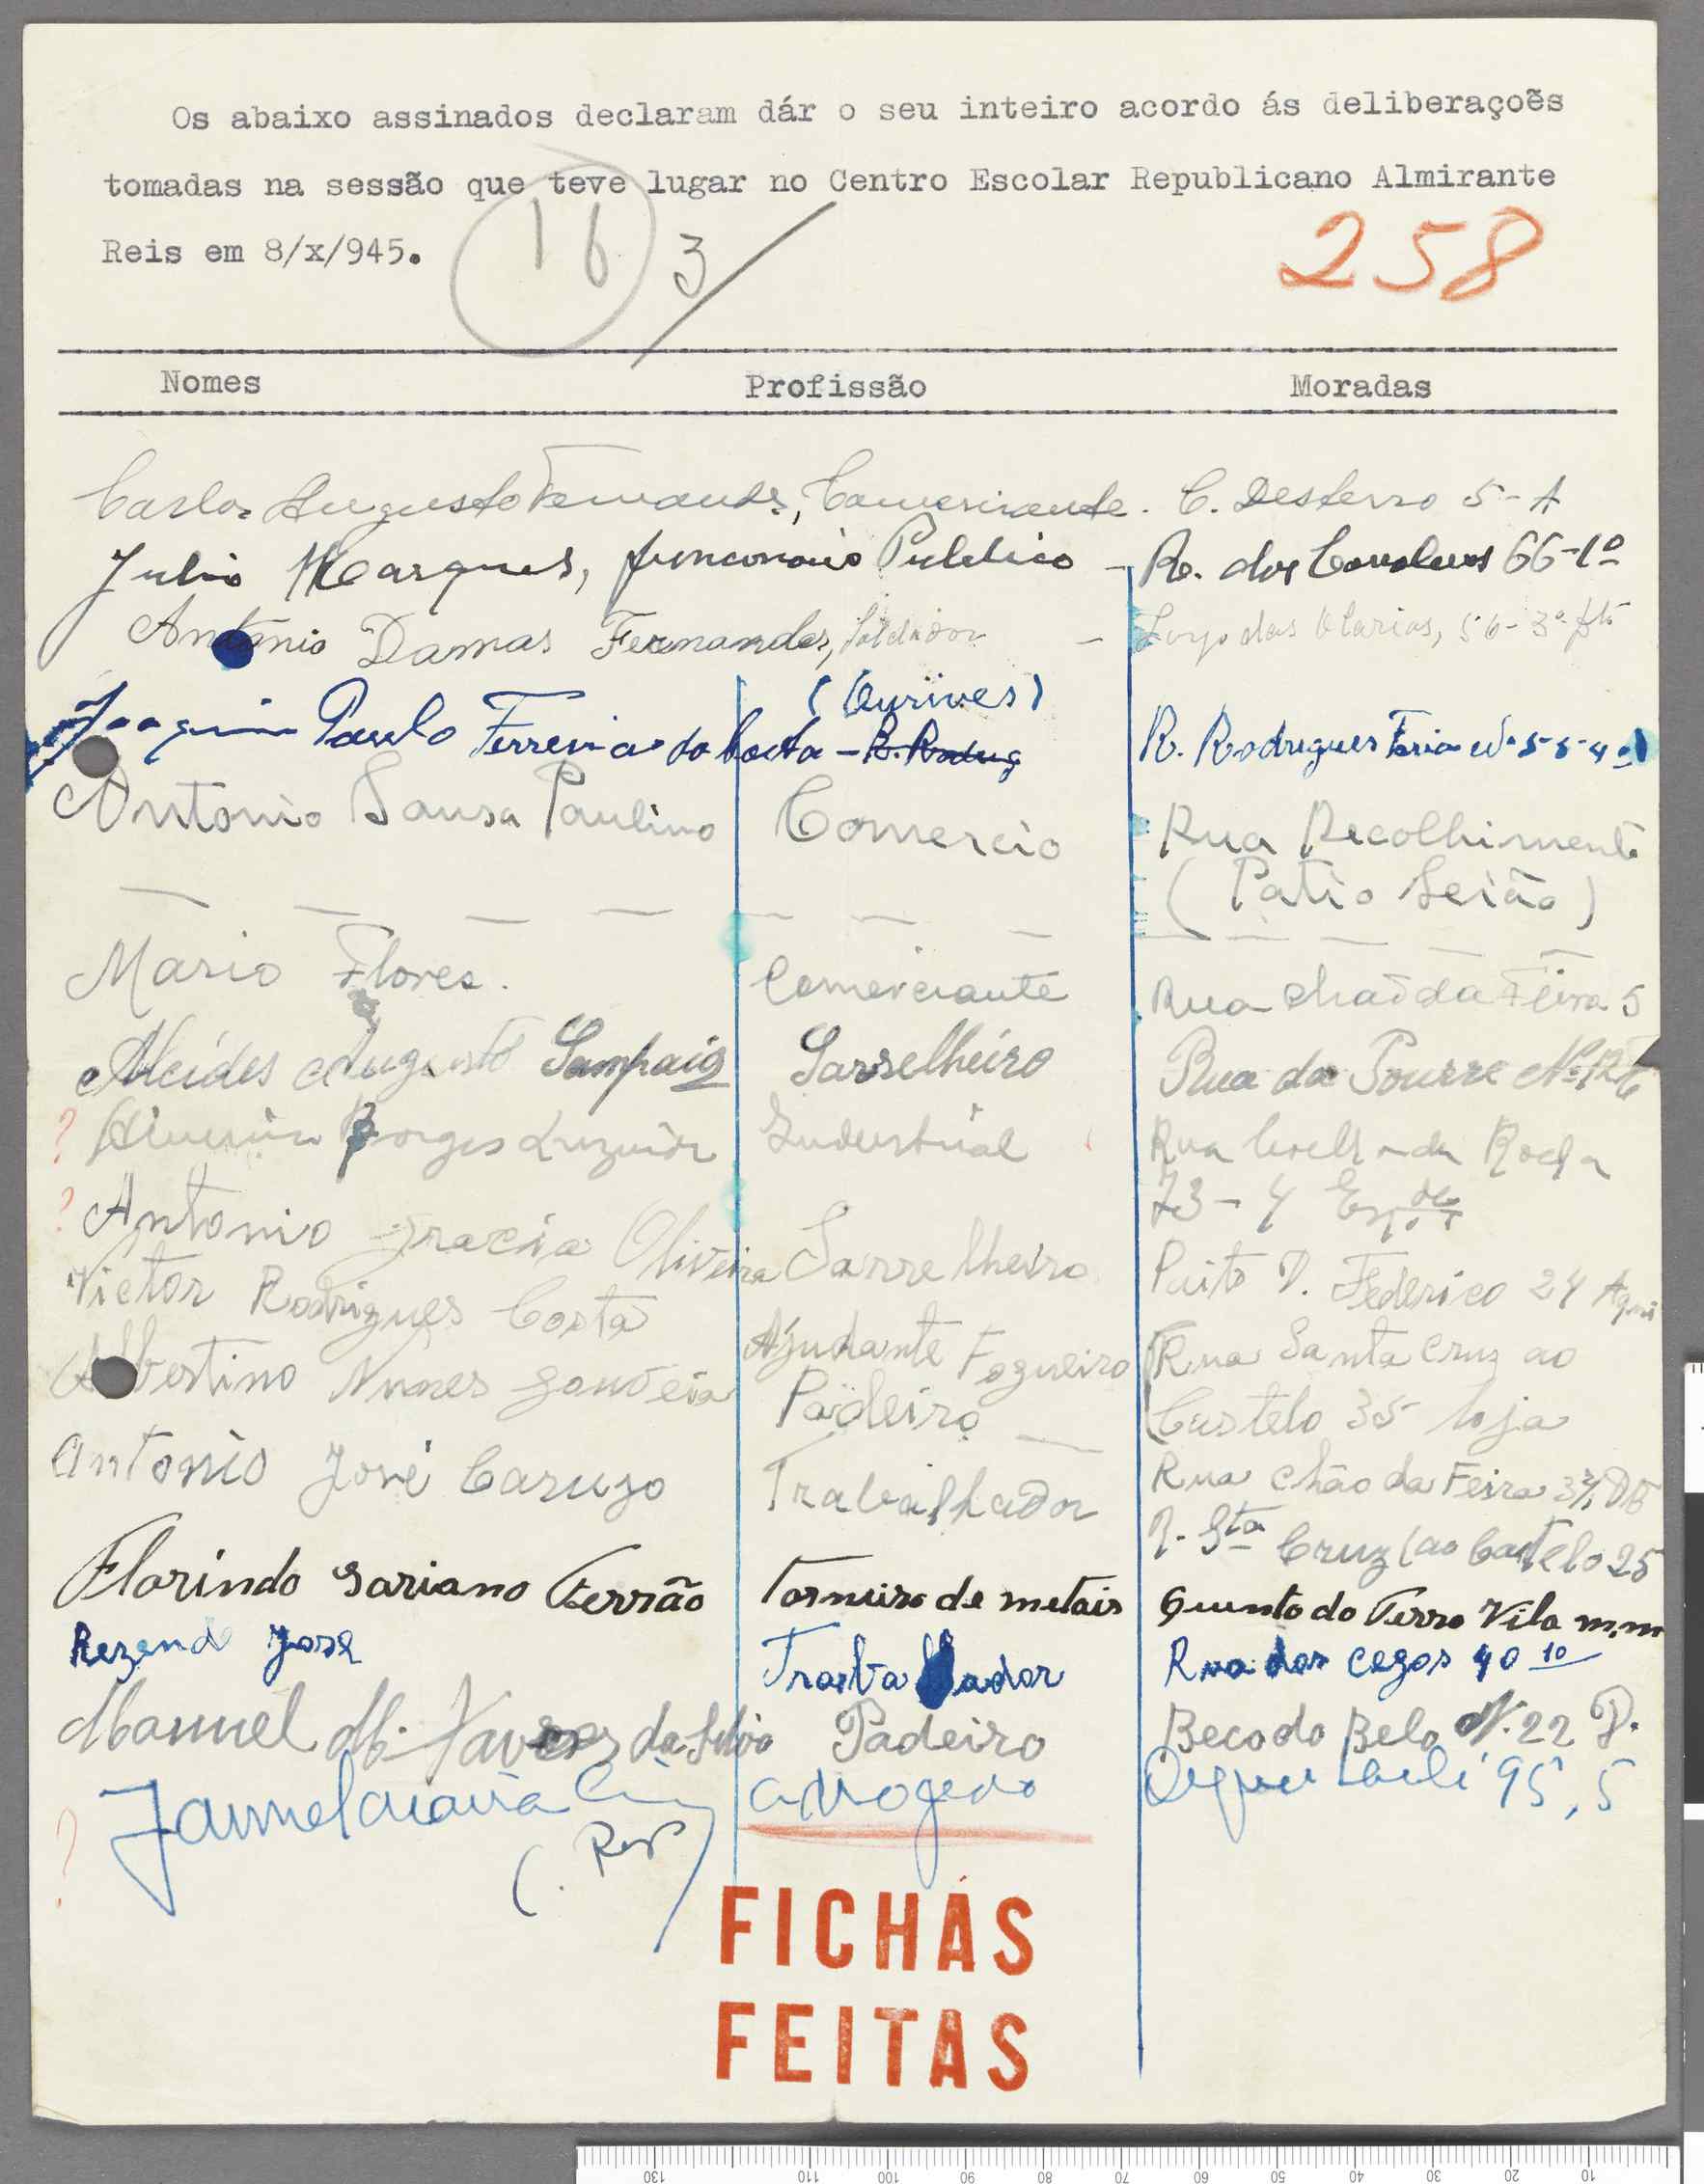 Os abaixo assinados declaram dár o seu inteiro acordo ás deliberaçoẽs
tomadas na sessão que teve lugar no Centro Escolar Republicano Almirante
Reis em 8/x/945.
16 3/ 258
Nomes Profissão Moradas
Carlos Augusto Fernandes, Comerciante. C. Desterro 5-A
Julio Marques, funconario Publico - R. dos Cavaleiros 66-1º
Antonio Damas Fernandes, Soldador - Largo das Olarias, 56-3º
(Ourives)
Joaquim Paulo Ferreira da Costa - R. Rodrig R. Rodrigues Faria
Antonio Sousa Paulino Comercio Rua Recolhimento
(Patio Seião)
Mario Flores. Comerciante Rua chaõ da Feira 5
Alcides Augusto Sampaio Sarselheiro Rua da
? Borges Industrial Rua Coelho da Rocha
73-4 Esqdo
? Antonio Gracia Oliveira Sarrelheiro Paito D. Federico 24
Victor Rodrigues Costa Ajudante Fogueiro Rua Santa Cruz ao
Castelo 35 loja
Albertino Nunes Gouveia Padeiro Rua Chão da Feira
Antonio José Caruzo Trabalhador R. Sta Cruz (ao Castelo 25
Florindo Sariano Ferrão Torneiro de metais Quinto do Ferro Vila M.M
Rezende José Trabalhador Rua dos cegos 40 1º
Manuel M. Tavares da Silva Padeiro Beco do Belo Nº 22 P.
? Jaime 95, 5
FICHAS
FEITAS
130 110 100 90 80 70 60 50 40 30 20 10